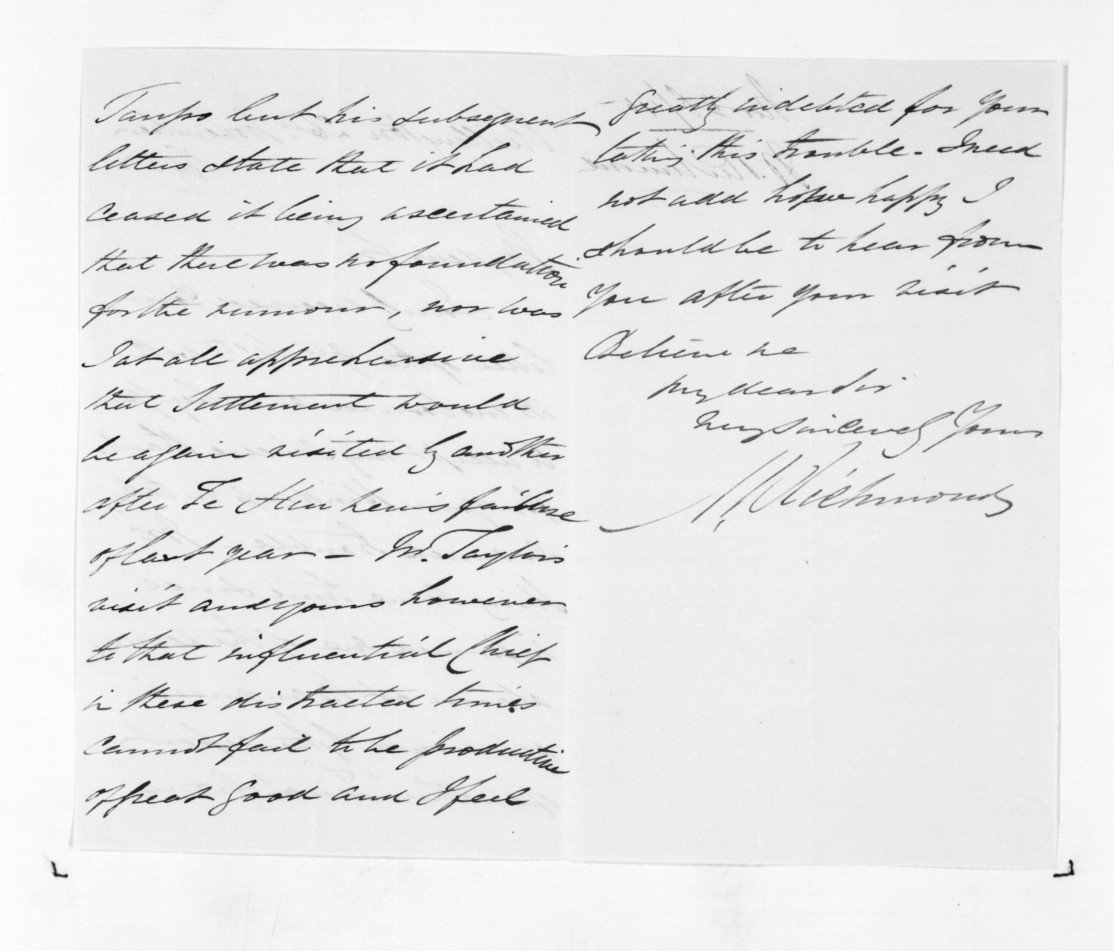 Taupo but his subsequent
letters state that it had
ceased it being ascertained
that there was no foundation
for the rumour, nor was
I at all apprehensive
that Settlement would
be again visited by another
after Te Heu heu's failure
of last year – Mr. Taylor's
visit and yours however
to that influential Chief
in these distracted times
cannot fail to be productive
of great good and I feel
greatly indebted for your
taking this trouble. I need
not add how happy I
should be to hear from
you after your visit
Believe me
My dear Sir
Very sincerely Yours
M Richmond